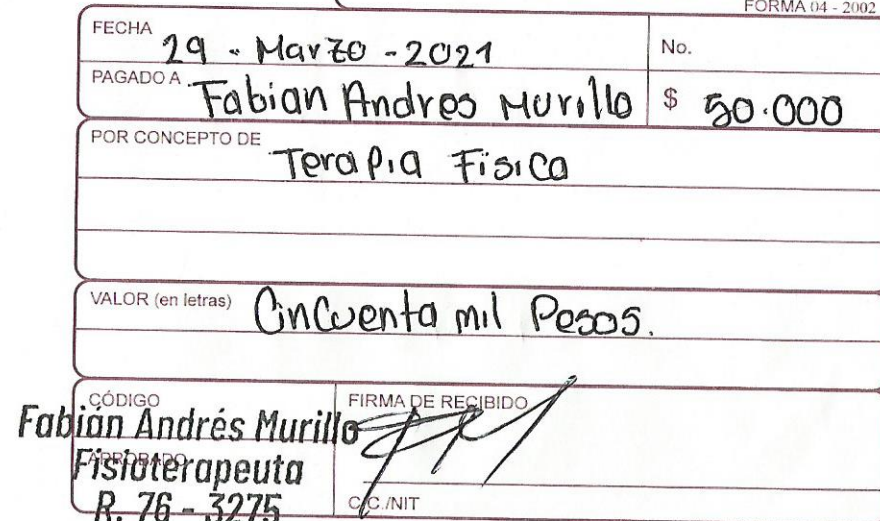 FORMA 04 - 2002
FECHA 29 - Marzo - 2021 No.
PAGADO A Fabian Andres Murillo $ 50.000
POR CONCEPTO DE Terapia Fisica
VALOR (en letras) Cincuenta mil Pesos.
CÓDIGO FIRMA DE RECIBIDO
Fabián Andrés Murillo
APROBADO
Fisioterapeuta
R. 76 - 3275 C.C./NIT